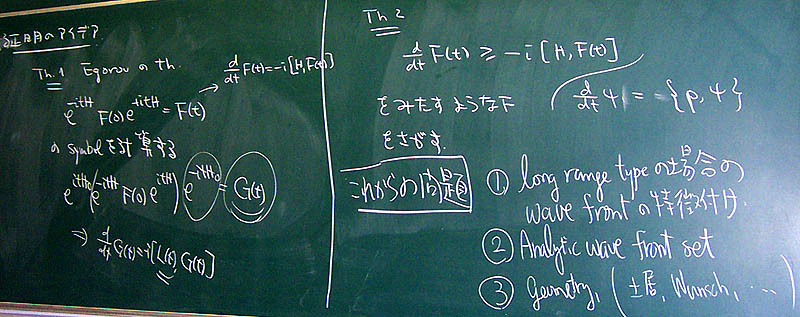 証明のアイデア
Th.1 Egorov の th.
→ d/dt F(t)=-i[H,F(t)]
e^{-itH} F(0) e^{itH} = F(t)
の symbol を計算する
e^{itH₀}(e^{-itH} F(0) e^{itH}) e^{-itH₀} = G(t)
⇒ d/dt G(t)=-i[L(t),G(t)]
Th.2
d/dt F(t) ≥ -i[H,F(t)]
をみたすような F
をさがす.
d/dt ψ = -{p,ψ}
これからの問題
① long range type の場合の
wave front の特徴付け.
② Analytic wave front set
③ Geometry, (土居, Wunsch, ...)